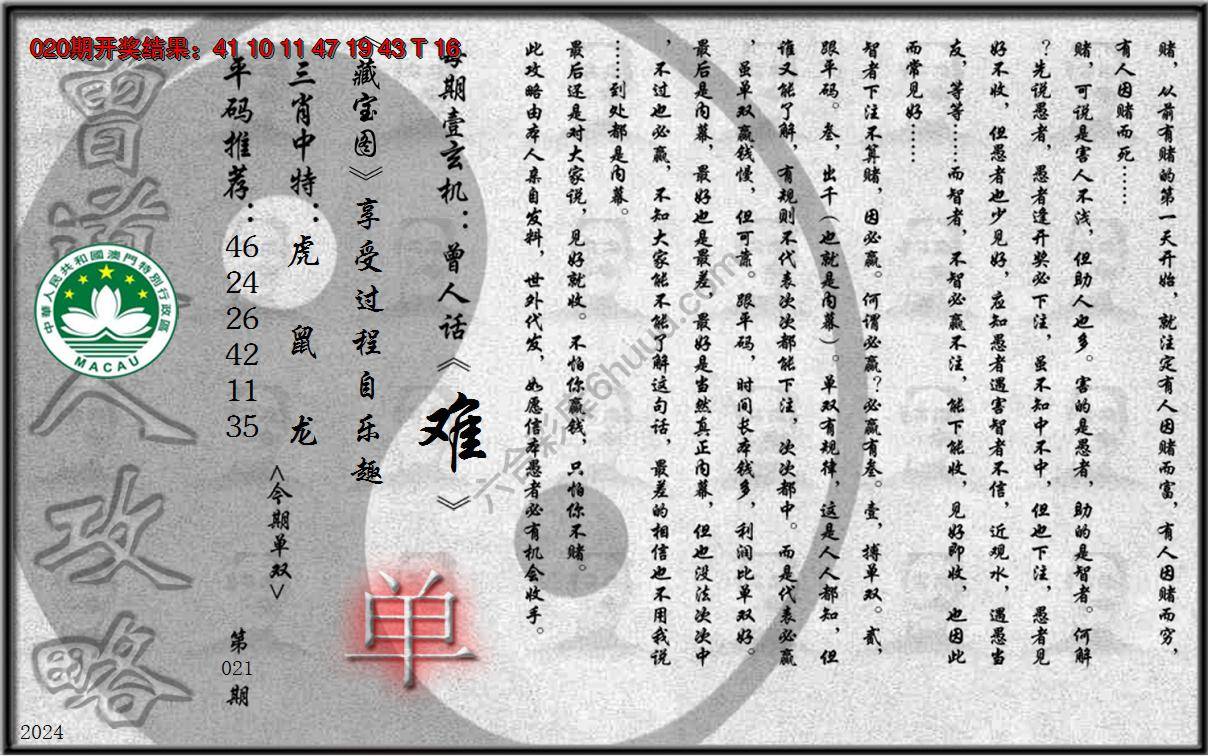 020期开奖结果：41 10 11 47 19 43 T 16
赌，从前有赌的第一天开始，就注定有人因赌而富，有人因赌而穷，
有人因赌而死……
赌，可说是害人不浅，但助人也多。害的是愚者，助的是智者。何解
？先说愚者，愚者逢开奖必下注，虽不知中不中，但也下注，愚者见
好不收，但愚者也少见好，应知愚者遇害智者不信，近观水，遇愚当
友，等等……而智者，不智必赢不注，能下能收，见好即收，也因此
而常见好……
智者下注不算赌，因必赢。何谓必赢？必赢有叁。壹，搏单双。贰，
跟平码。叁，出千（也就是内幕）。单双有规律，这是人人都知，但
谁又能了解，有规则不代表次次都能下注，次次都中。而是代表必赢
，虽单双赢钱慢，但可靠。跟平码，时间长本钱多，利润比单双好。
最后是内幕，最好也是最差，最好是当然真正内幕，但也没法次次中
，不过也必赢，不知大家能不能了解这句话，最差的相信也不用我说
……到处都是内幕。
最后还是对大家说，见好就收。不怕你赢钱，只怕你不赌。
此攻略由本人亲自发料，世外代发，如愿信本愚者必有机会收手。
每期壹玄机：曾人话《难》
《藏宝图》享受过程自乐趣
三肖中特：虎 鼠 龙
平码推荐：
46
24
26
42
11
35
<今期单双>
单
第
021
期
曾道人攻略
中華人民共和國澳門特別行政區
MACAU
六合彩库6huuu.com
2024